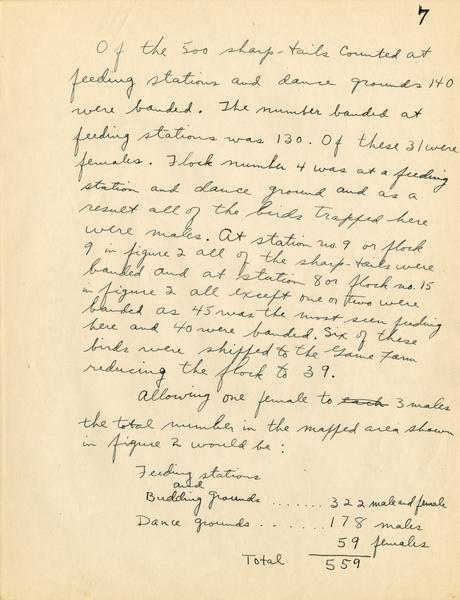 7
Of the 500 sharp-tails counted at
feeding stations and dance grounds 140
were banded. The number banded at
feeding stations was 130. Of these 31 were
females. Flock number 4 was at a feeding
station and dance ground and as a
result all of the birds trapped here
were males. At station no. 9 or flock
9 in figure 2 all of the sharp-tails were
banded and at station 8 or flock no. 15
in figure 2 all except one or two were
banded as 45 was the most seen feeding
here and 40 were banded. Six of these
birds were shipped to the Game Farm
reducing the flock to 39.
Allowing one female to each 3 males
the total number in the mapped area shown
in figure 2 would be:
Feeding stations
and
Budding grounds ....... 322 male and female
Dance grounds . . ..... 178 males
59 females
Total 559